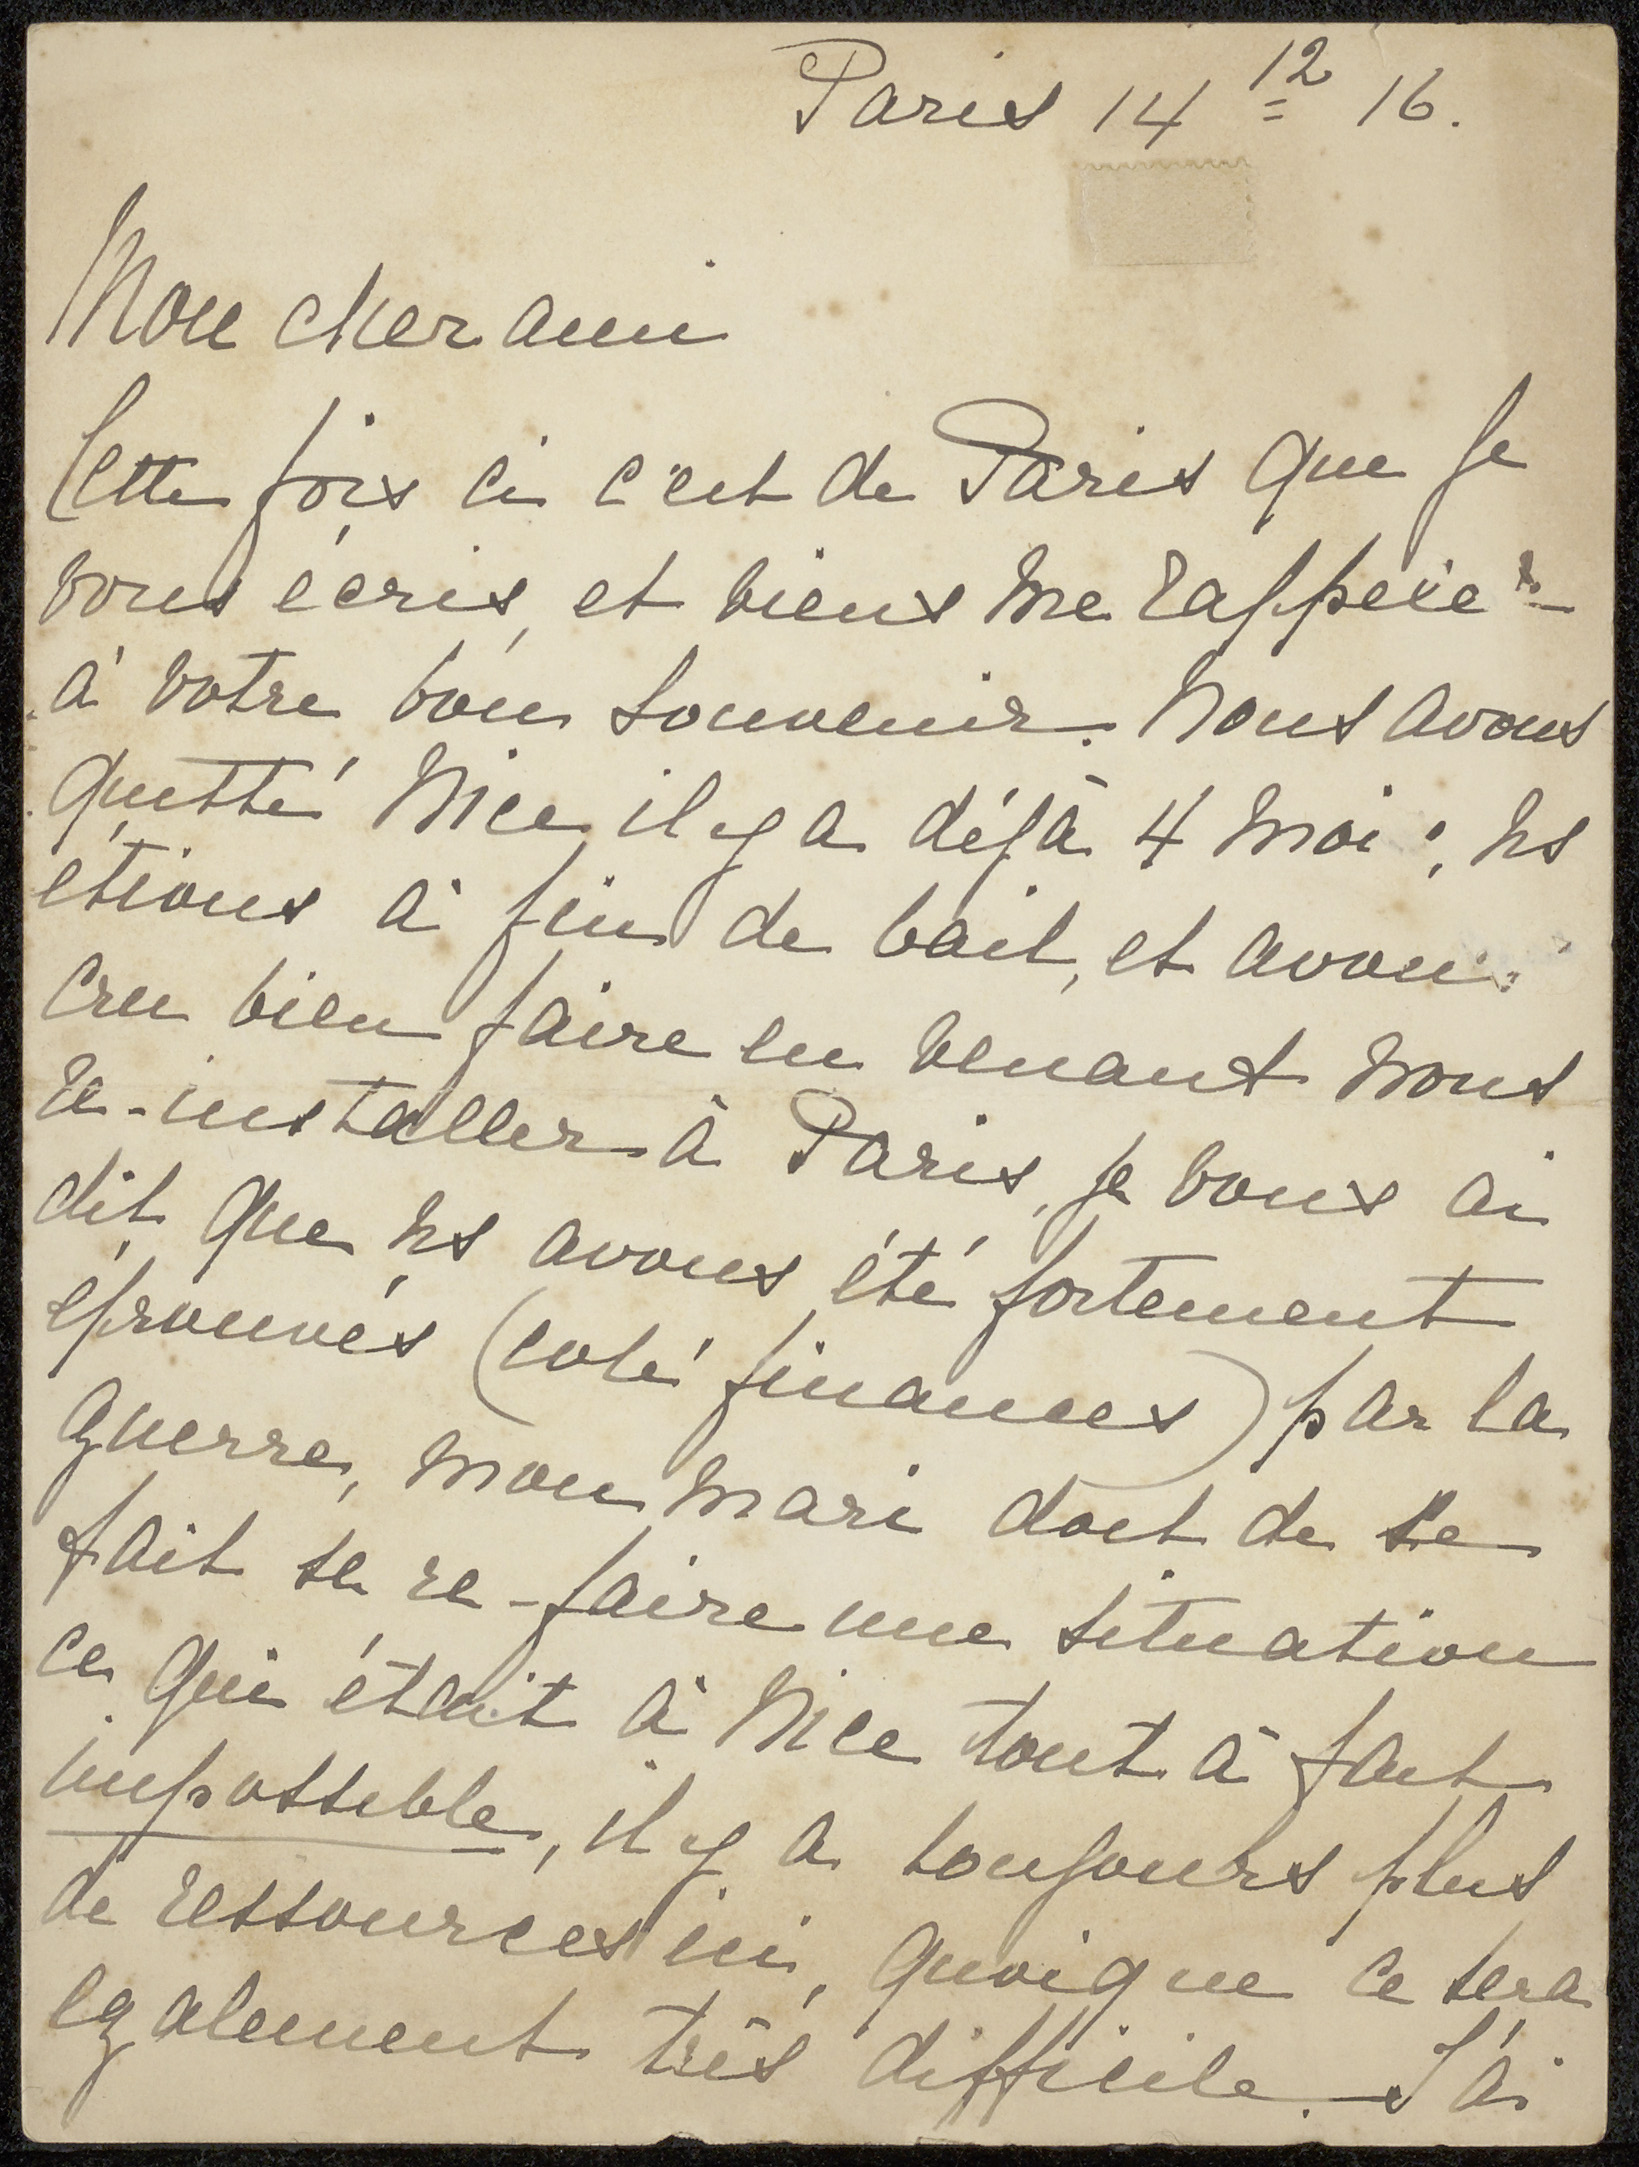 Paris 14 12 16.
Mon cher ami
Cette fois ci c'est de Paris que je
vous écris, et viens me rappeler
à votre bon souvenir. Nous avons
quitté Nice, il y a déjà 4 mois, ns
etions à fin de bail, et avons
cru bien faire en venant nous
re-installer à Paris, je vous ai
dit que ns avons été fortement
eprouvés (coté finances) par la
guerre, mon mari doit de se
fait se re-faire une situation
ce qui était à Nice tout à fait
impossible, il y a toujours plus
de ressources ici, quoique ce sera
egalement très difficile. J'ai